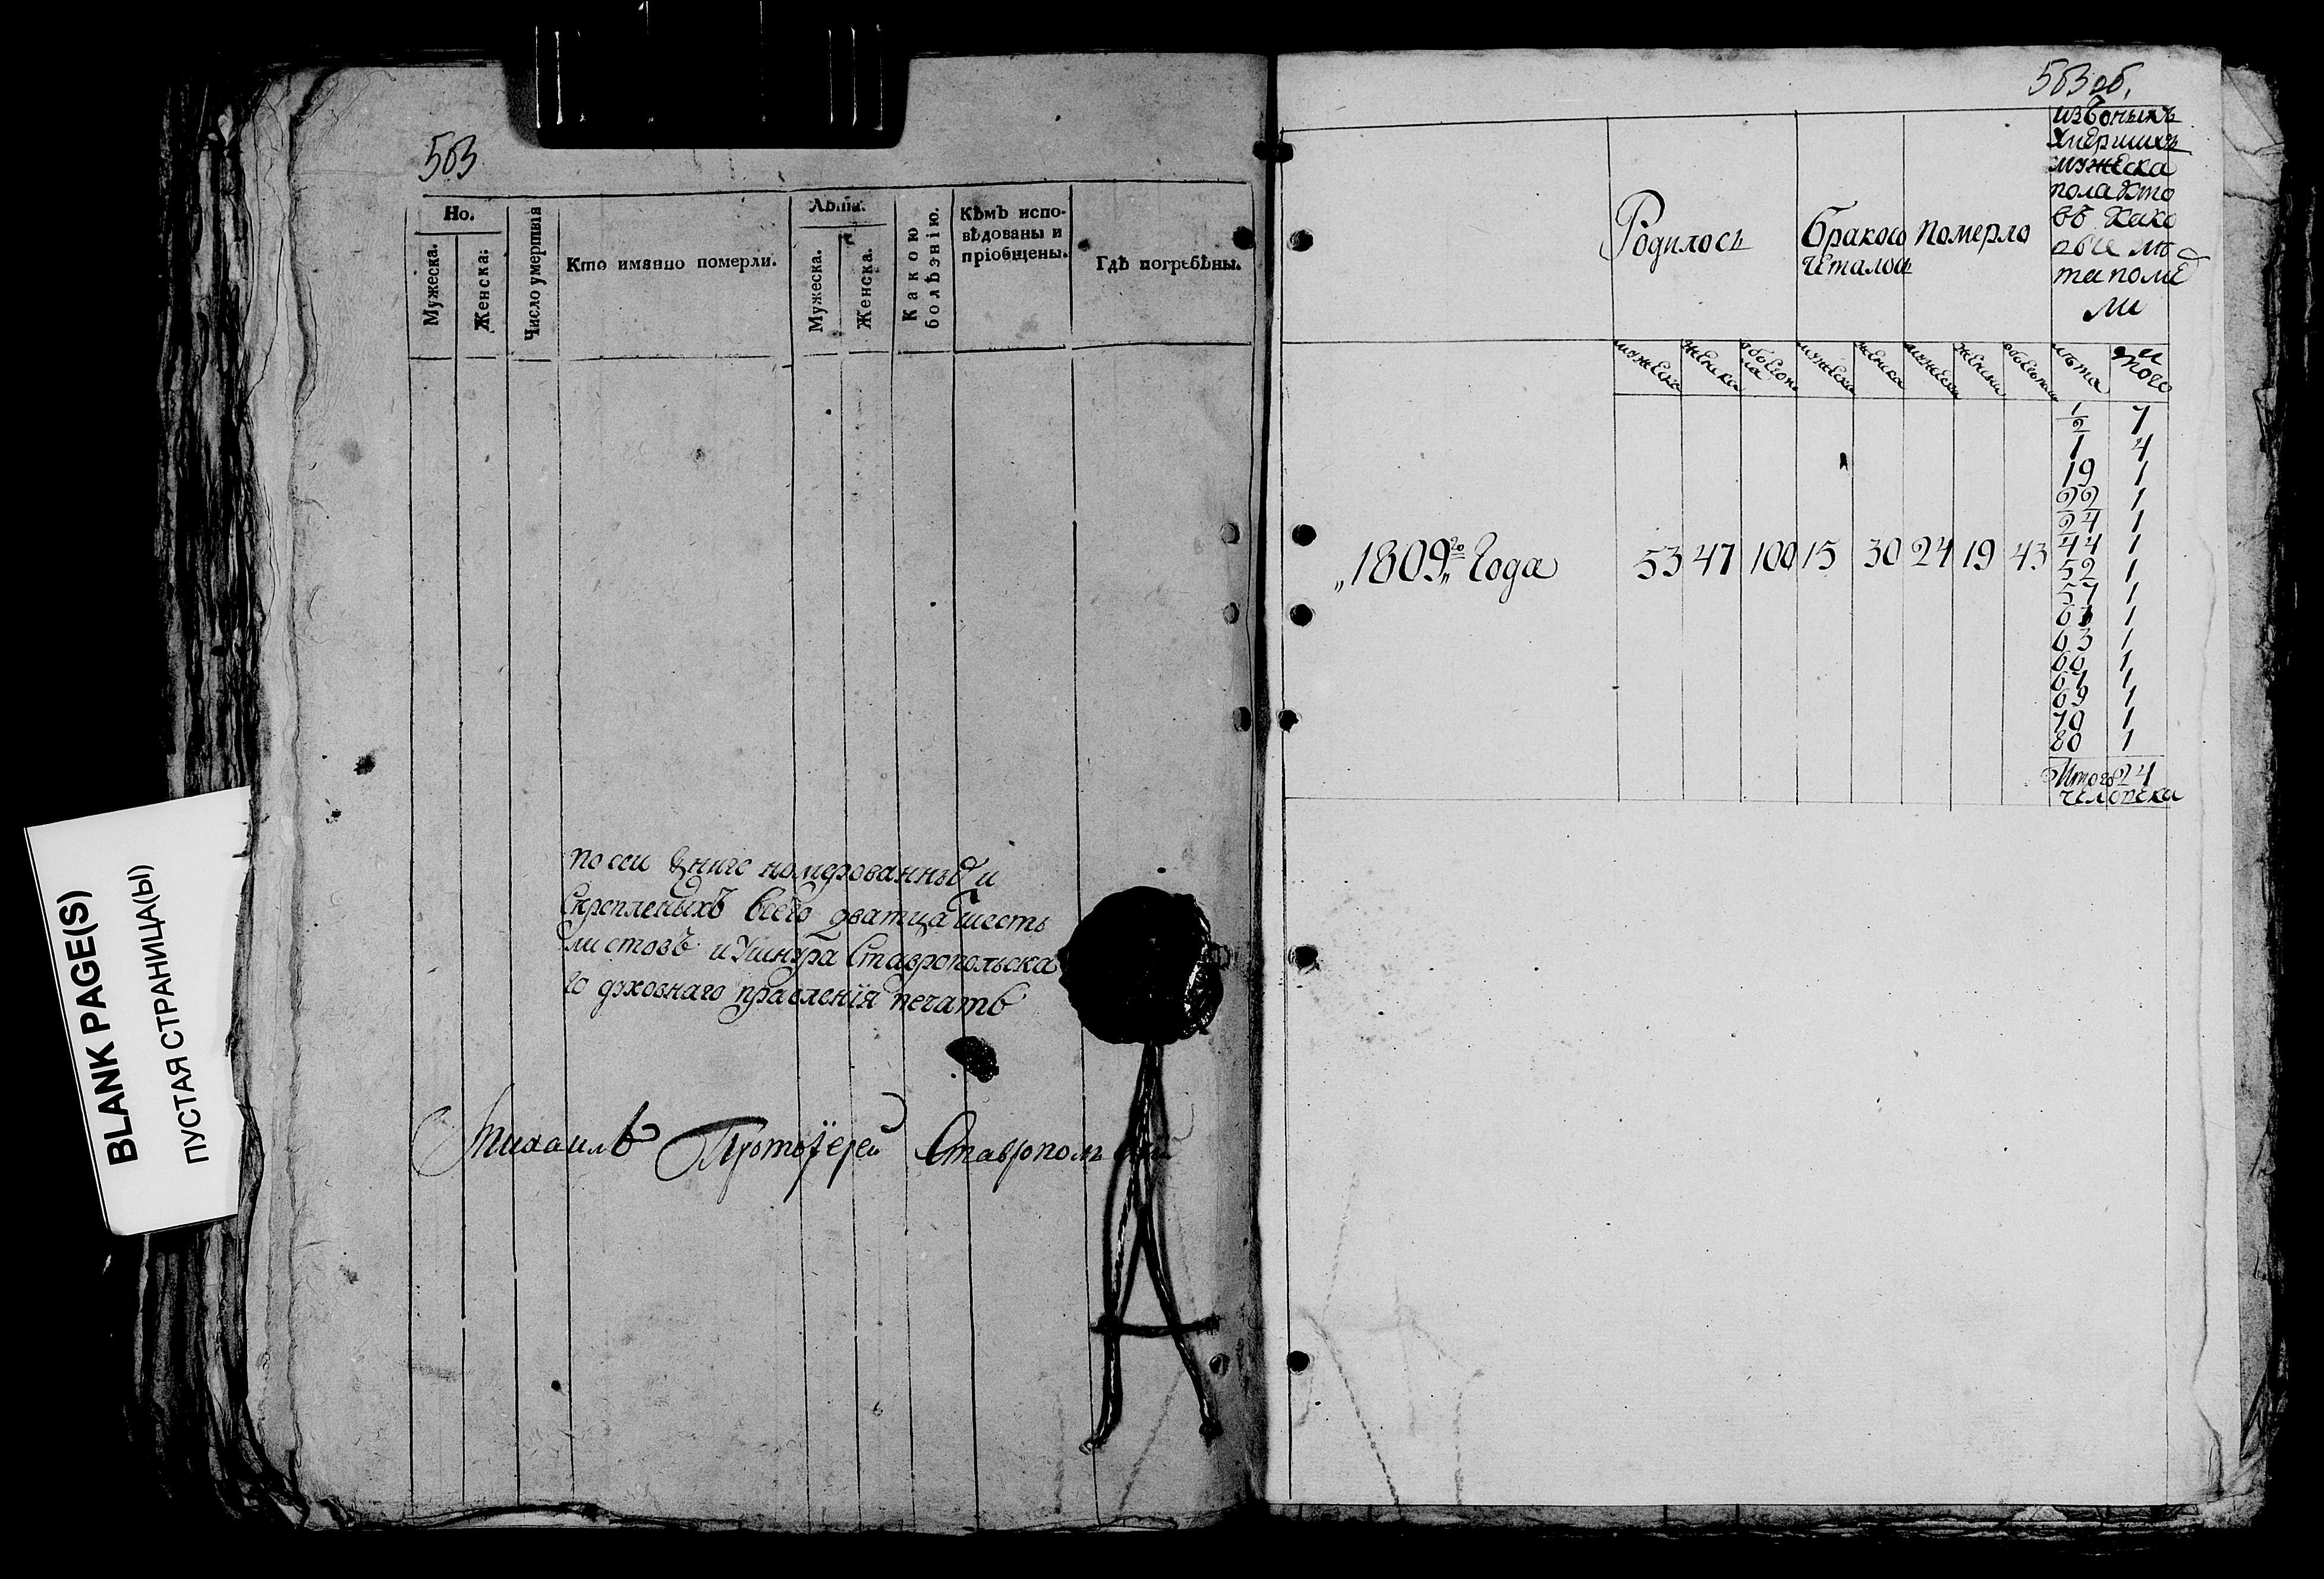 BLANK PAGE(S)
ПУСТАЯ СТРАНИЦА(Ы)
563
Но.
Мужеска.
Женска.
Число умертвія
Кто имянно померли.
Лѣта.
Мужеска.
Женска.
Какою болѣзнію.
Кѣмъ испо-
вѣдованы и
пріобщены.
Гдѣ погребены.
по сеи книге номерованныхъ и
Скрепленыхъ всего дватцать шесть
листовъ и ушнура Ставропольска
го духовнаго правленїя печать
Михаилъ Протоїерей Ставропольскии
563 об.
Родилось
Бракосо
четалось
померло
изъ оныхъ
умершихъ
мужеска
пола кто
въ како
ли
мужеска
женска
мужеска
женска
мужеска
женска
лѣта
итого
„1809„го Года
53 47 100 15 30 24 19 43
1/2 7
1 4
19 1
22 1
24 1
44 1
52 1
57 1
61 1
63 1
66 1
67 1
69 1
70 1
80 1
Итого 24
человека